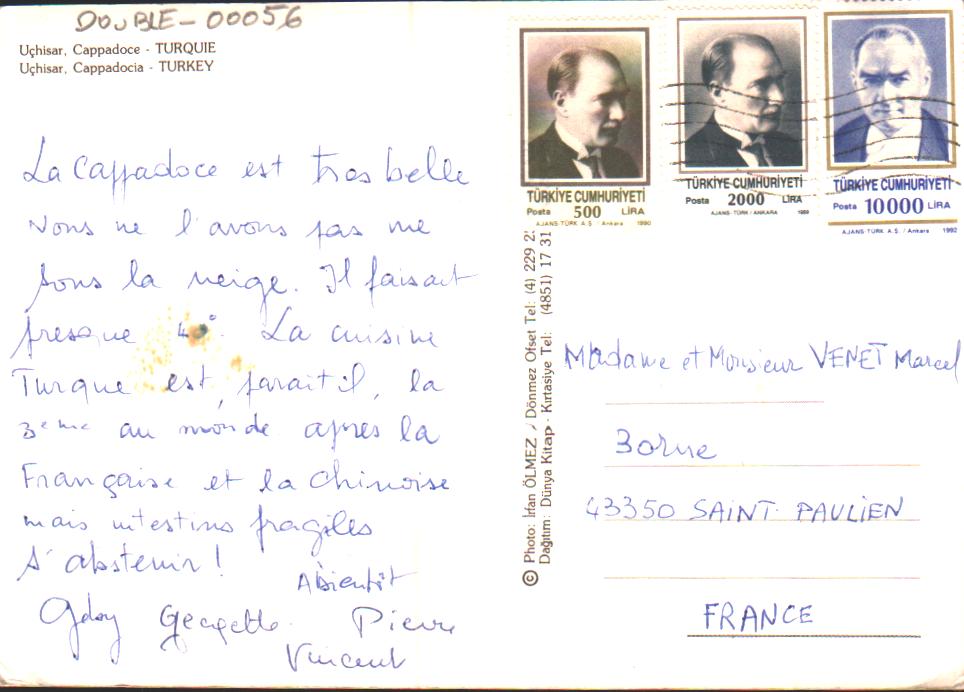 DOUBLE-00056
Uçhisar, Cappadoce - TURQUIE
Uçhisar, Cappadocia - TURKEY
La Cappadoce est très belle
Nous ne l'avons pas vue
sous la neige. Il faisait
presque 40°. La cuisine
Turque est, parait il, la
3eme au monde après la
Française et la Chinoise
mais intestins fragiles
s'abstenir !
Abientôt
Georgette Pierre
Vincent
TÜRKİYE CUMHURİYETİ
Posta 500 LİRA
AJANS-TÜRK A.Ş. / Ankara 1990
TÜRKİYE CUMHURİYETİ
Posta 2000 LİRA
AJANS-TÜRK / ANKARA 1989
TÜRKİYE CUMHURİYETİ
Posta 10000 LİRA
AJANS-TÜRK A.Ş. / Ankara 1992
© Photo: İrfan ÖLMEZ / Dönmez Ofset Tel: (4) 229 2
Dağıtım : Dünya Kitap - Kırtasiye Tel: (4851) 17 31
Madame et Monsieur VENET Marcel
Borne
43350 SAINT PAULIEN
FRANCE